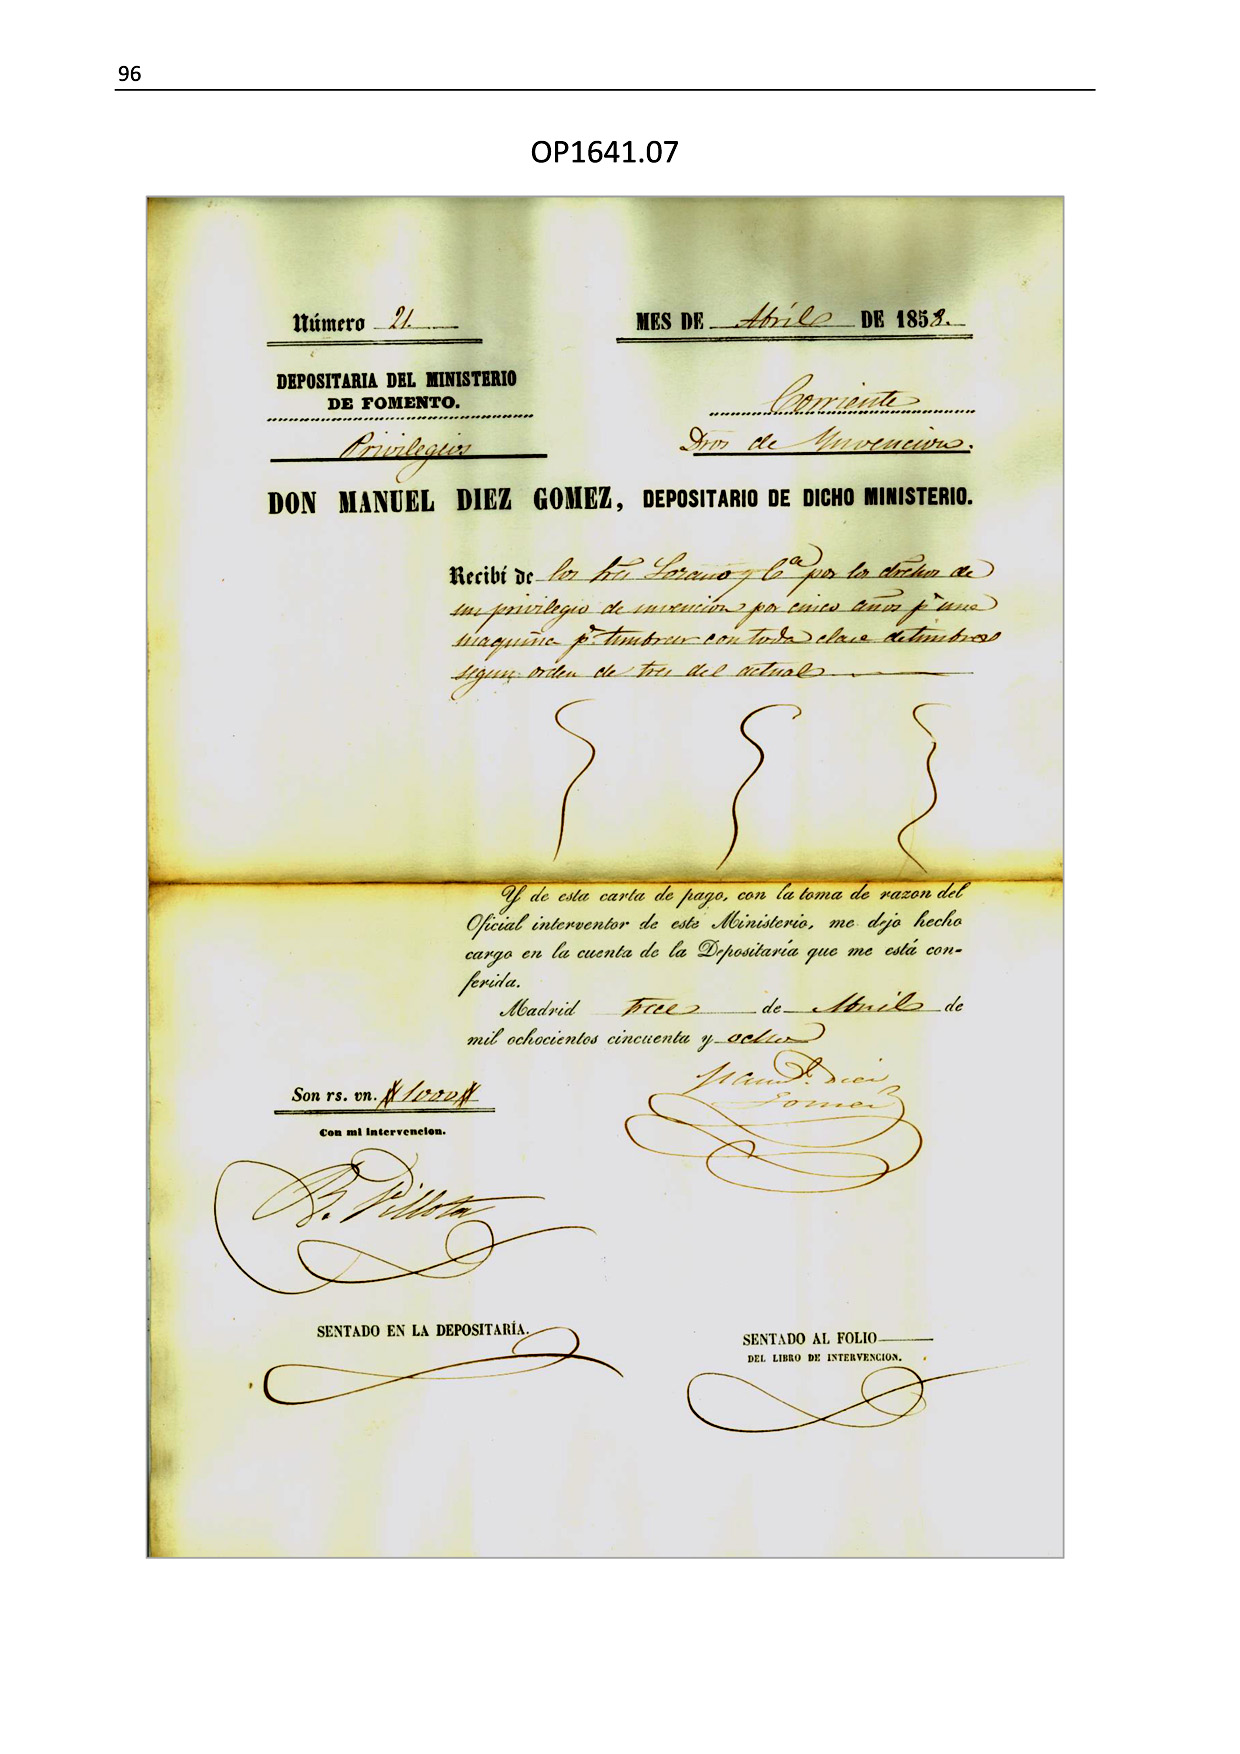 96
OP1641.07
Número 21. MES DE Abril DE 1858.
DEPOSITARIA DEL MINISTERIO
DE FOMENTO.
Corriente
Privilegios Dros de Ynvencion.
DON MANUEL DIEZ GOMEZ, DEPOSITARIO DE DICHO MINISTERIO.
Recibí de los Sres Lozano y Cª por los drechos de
un privilegio de invencion por cinco años pª una
maquina pª timbrar con toda clase de timbres
segun orden de tres del actual
Y de esta carta de pago, con la toma de razon del
Oficial interventor de este Ministerio, me dejo hecho
cargo en la cuenta de la Depositaría que me está con-
ferida.
Madrid trece de Abril de
mil ochocientos cincuenta y ocho
Manl. Diez
Gomez
Son rs. vn. 1000
Con mi intervencion.
B. Villota
SENTADO EN LA DEPOSITARÍA.
SENTADO AL FOLIO
DEL LIBRO DE INTERVENCION.